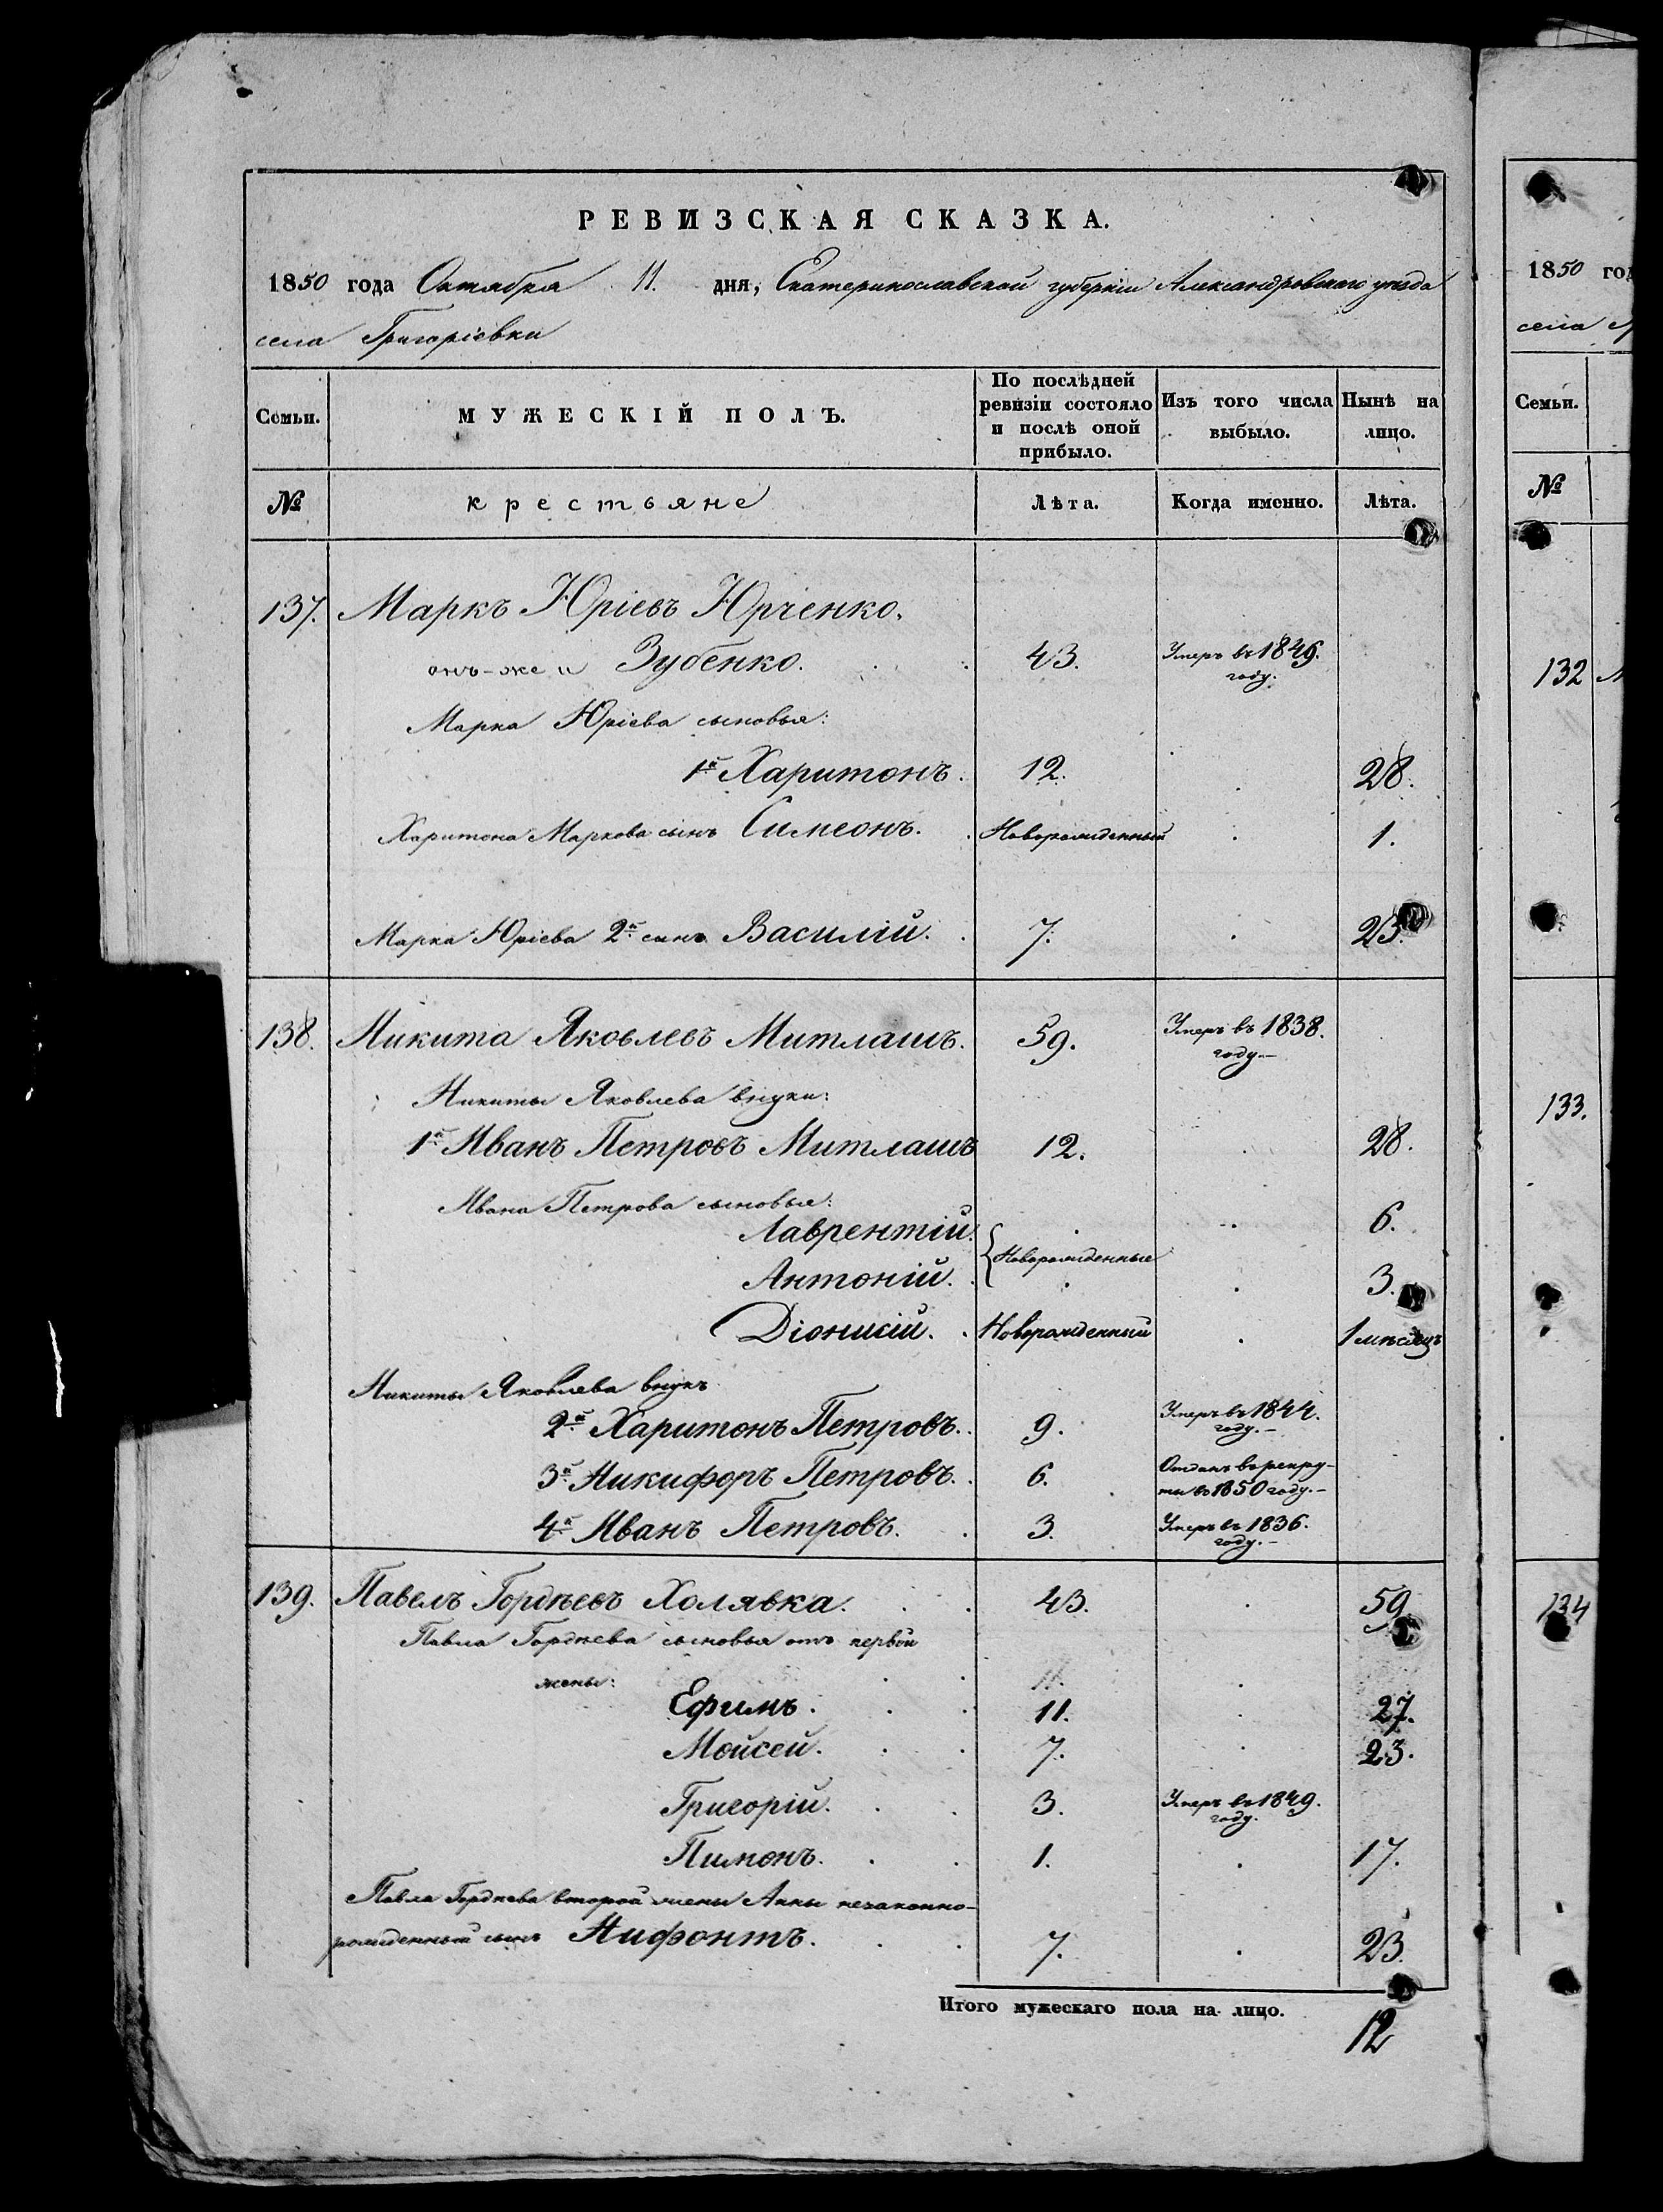 РЕВИЗСКАЯ СКАЗКА.
1850 года Октября 11. дня, Екатеринославской губерніи Александровскаго уѣзда
села Григоріевки
Семьи.
МУЖЕСКІЙ ПОЛЪ.
По послѣдней
ревизіи состояло
и послѣ оной
прибыло.
Изъ того числа
выбыло.
Нынѣ на
лицо.
№ крестьяне Лѣта. Когда именно. Лѣта.
137. Маркъ Юріевъ Юрченко,
онъ-же и Зубенко. 43. Умеръ въ 1849.
году.
Марка Юріева сыновья:
1й Харитонъ. 12. 28.
Харитона Маркова сынъ Симеонъ. Новорожденный 1.
Марка Юріева 2й сынъ Василій. 7. 23.
138. Никита Яковлевъ Митлашъ. 59. Умеръ въ 1838.
году.—
Никиты Яковлева внуки:
1й Иванъ Петровъ Митлашъ 12. 28.
Ивана Петрова сыновья:
Лаврентій. 6.
Новорожденные
Антоній. 3.
Діонисій. Новорожденный 1 мѣсяцъ
Никиты Яковлева внукъ
2й Харитонъ Петровъ. 9. Умеръ въ 1844.
году.—
3й Никифоръ Петровъ. 6. Отданъ въ рекру-
ты въ 1850 году.—
4й Иванъ Петровъ. 3. Умеръ въ 1836.
году.—
139. Павелъ Гордѣевъ Холявка. 43. 59.
Павла Гордѣева сыновья отъ первой
жены: 11.
Ефимъ. 11. 27.
Мойсей. 7. 23.
Григорій. 3. Умеръ въ 1849.
году.
Пимонъ. 1. 17.
Павла Гордѣева второй жены Анны незаконно-
рожденный сынъ Нифонтъ. 7. 23.
Итого мужескаго пола на лицо.
12
1850 год
села
Семьи.
№
132
133.
134